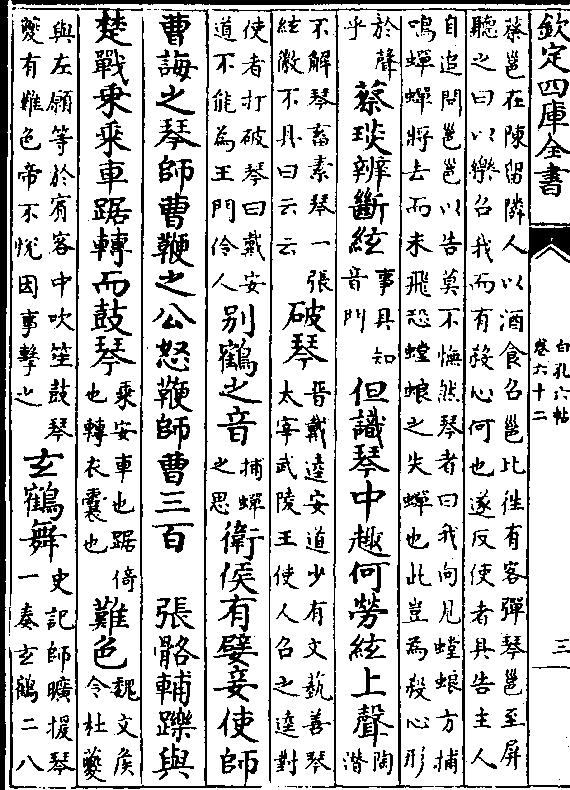 欽定四庫全書
白孔六帖
卷六十二
三
蔡邕在陳留隣人以酒食召邕比徃有客彈琴邕至屏
聽之曰以樂召我而有殺心何也遂反使者具告主人
自追問邕邕以告莫不憮然琴者曰我向見螳蜋方捕
鳴蟬蟬將去而未飛恐螳蜋之失蟬也此豈為殺心形
於聲
乎
蔡琰辨斷絃
事具知
音門
但識琴中趣何勞絃上聲
陶
潛
不解琴畜素琴一張
絃徽不具曰云云
破琴
晉戴逵安道少有文藝善琴
太宰武陵王使人召之逵對
使者打破琴曰戴安
道不能為王門伶人
别鶴之音
捕蟬
之思
衛侯有嬖妾使師
曹誨之琴師曹鞭之公怒鞭師曹三百
張骼輔躒與
楚戰乗乘車踞轉而鼓琴
乘安車也踞倚
也轉衣囊也
難色
魏文矦
令杜夔
與左願等於賓客中吹笙鼓琴
夔有難色帝不悅因事擊之
玄鶴舞
史記師曠援琴
一奏玄鶴二八